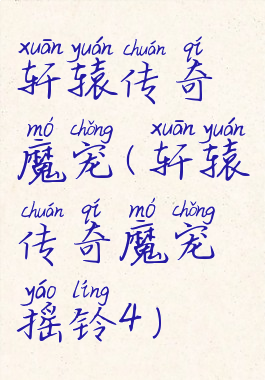 xuān yuán chuán qí
轩辕传奇
mó chǒng xuān yuán
魔宠(轩辕
chuán qí mó chǒng
传奇魔宠
yáo líng
摇铃4)